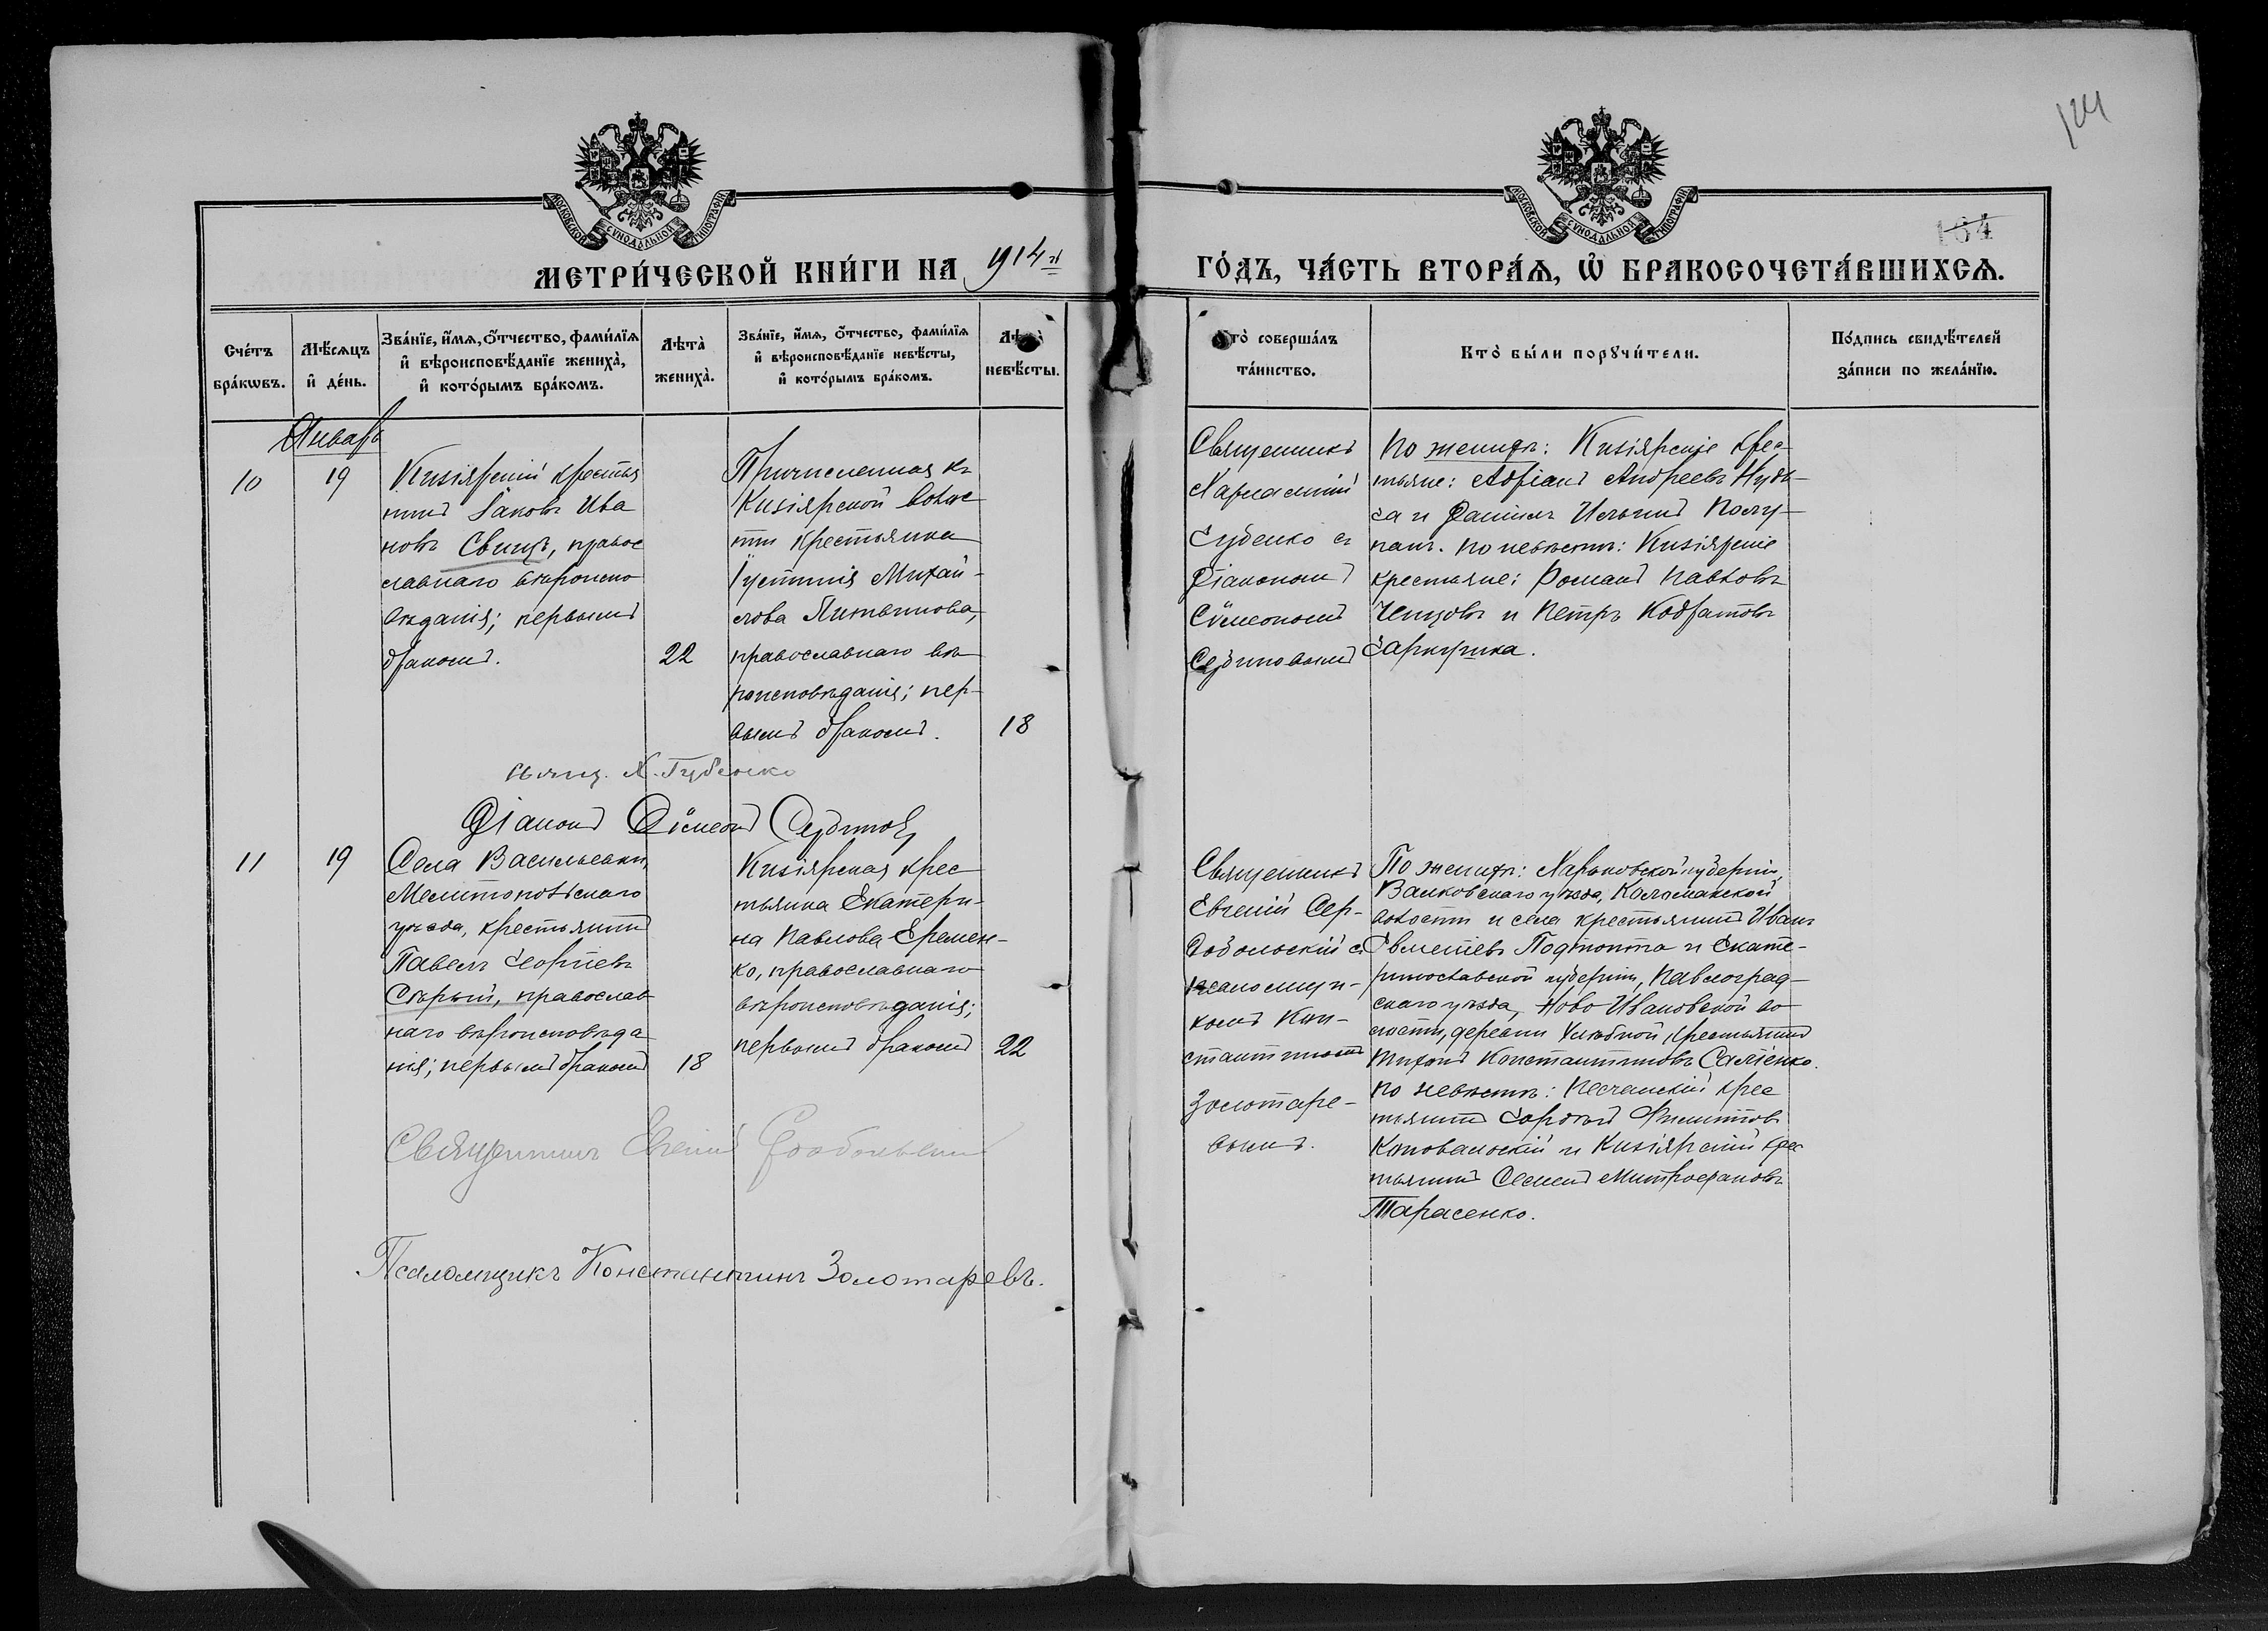 124
164
МОСКОВСКОЙ СѴНОДАЛЬНОЙ ТИПОГРАФІИ
МОСКОВСКОЙ СѴНОДАЛЬНОЙ ТИПОГРАФІИ
МЕТРИ́ЧЕСКОЙ КНИ́ГИ НА 1914 й
ГО́ДЪ, ЧА́СТЬ ВТОРА́Я, Ѿ БРАКОСОЧЕТА́ВШИХСЯ.
Сче́тъ
бра́кѡвъ.
Мѣ́сяцъ
и҆ де́нь.
Зва́нїе, и҆́мя, ѻ҆́тчество, фами́лїя
и҆ вѣроисповѣ́данїе жениха̀,
и҆ кото́рымъ бра́комъ.
Лѣта̀
жениха̀.
Зва́нїе, и҆́мя, ѻ҆́тчество, фами́лїя
и҆ вѣроисповѣ́данїе невѣ́сты,
и҆ кото́рымъ бра́комъ.
Лѣта̀
невѣ́сты.
Кто̀ соверша́лъ
та́инство.
Кто̀ бы́ли порꙋчи́тели.
По́дпись свидѣ́телей
за́писи по жела́нїю.
Январь
10
19
Кизіярскій крестья
нинъ Іаковъ Ива
новъ Свинъ, правос
славнаго вѣроиспо
вѣданія; первымъ
бракомъ.
22
Причисленная къ
Кизіярской волос
ти крестьянка
Іустинія Михай-
лова Литвинова,
православнаго вѣ
роисповѣданія; пер-
вымъ бракомъ.
18
Священникъ
Харлампій
Губенко съ
Діакономъ
Сѵмеономъ
Сербиновымъ
По женихѣ: Кизіярскіе крес-
тьяне: Адріанъ Андреевъ Нуд-
га и Даніилъ Ильинъ Полу-
панъ. По невѣстѣ: Кизіярскіе
крестьяне: Романъ Павловъ
Ченцовъ и Петръ Кодратовъ
Гаркуша.
Свящ. Х. Губенко
Діаконъ Сѵмеонъ Сербиновъ
11
19
Села Васильевки,
Мелитопольскаго
уѣзда, крестьянинъ
Павелъ Георгіевъ
Сѣрый, православ
наго вѣроисповѣда
нія; первымъ бракомъ
18
Кизіярская крес
тьянка Екатери-
на Павлова Еремен-
ко, православнаго
вѣроисповѣданія;
первымъ бракомъ
22
Священникъ
Евгеній Сер-
добольскій съ
псаломщи-
комъ Кон-
стантиномъ
Золотаре-
вымъ.
По женихѣ: Харьковской губерніи,
Валковскаго уѣзда, Коломакской
волости и села крестьянинъ Иванъ
Евментіевъ Подтопта и Екате-
ринославской губерніи, Павлоград-
скаго уѣзда, Ново-Ивановской во
лости, деревни крестьянинъ
Тихонъ Константиновъ Саліенко.
По невѣстѣ: Песчанскій крес
тьянинъ Гордѣй Филиповъ
Коновальскій и Кизіярскій крес
тьянинъ Семенъ Митрофановъ
Тарасенко.
Священникъ Евгеній Сердобольскій
Псаломщикъ Константинъ Золотаревъ.